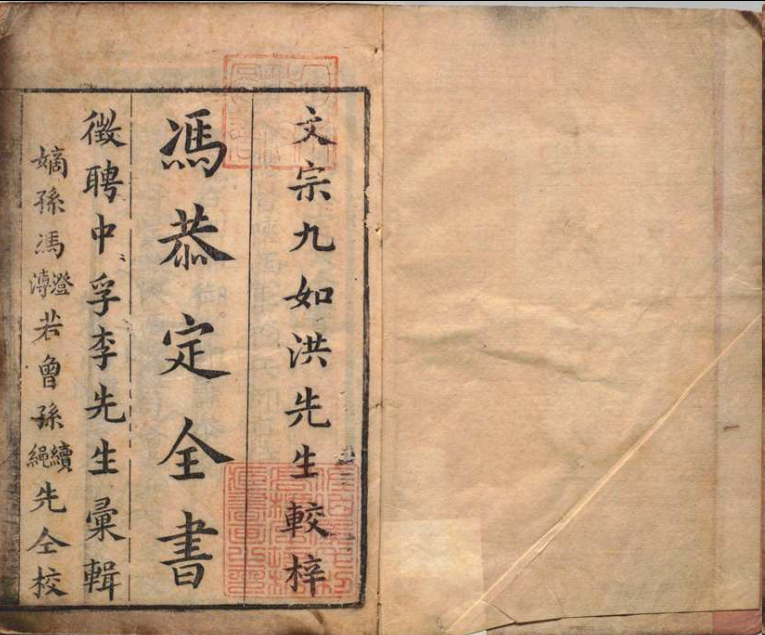 文宗九如洪先生較梓
馮恭定全書
徵聘中孚李先生彙輯
嫡孫馮澄溥若曾孫續繩先仝校